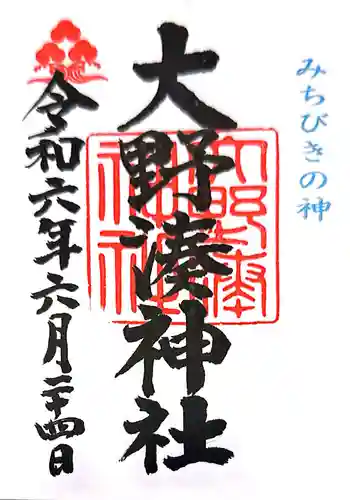 みちびきの神
大野湊神社
令和六年六月二十四日